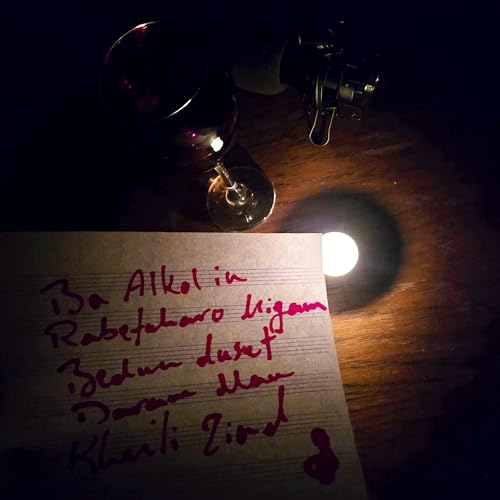 Ba Alkol in
Rabetaharo Migam
Bedun duset
Daram Man
Kheili Ziad